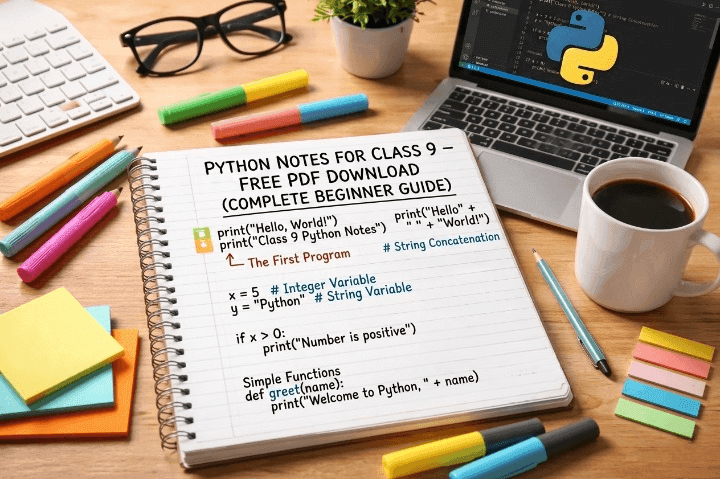 PYTHON NOTES FOR CLASS 9 –
FREE PDF DOWNLOAD
(COMPLETE BEGINNER GUIDE)
print("Hello, World!")
print("Class 9 Python Notes")
The First Program
print("Hello" +
" " + "World!")
# String Concatenation
x = 5 # Integer Variable
y = "Python" # String Variable
if x > 0:
print("Number is positive")
Simple Functions
def greet(name):
print("Welcome to Python, " + name)